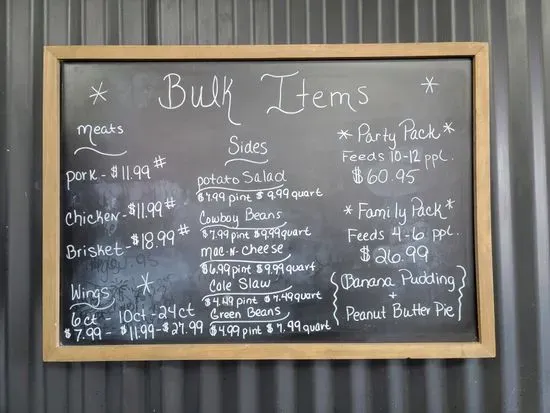 Bulk Items
Meats
pork - $11.99 #
Chicken - $11.99 #
Brisket - $18.99 #
Wings
6ct 10ct - 24ct
$7.99 - $11.99 - $27.99
Sides
potato Salad
$7.99 pint $9.99 quart
Cowboy Beans
$7.99 pint $9.99 quart
mac-n-cheese
$6.99 pint $9.99 quart
Cole Slaw
$4.49 pint $7.49 quart
Green Beans
$4.99 pint $7.99 quart
* Party Pack *
Feeds 10-12 ppl.
$60.95
* Family Pack *
Feeds 4-6 ppl.
$26.99
{Banana Pudding
+
Peanut Butter Pie}